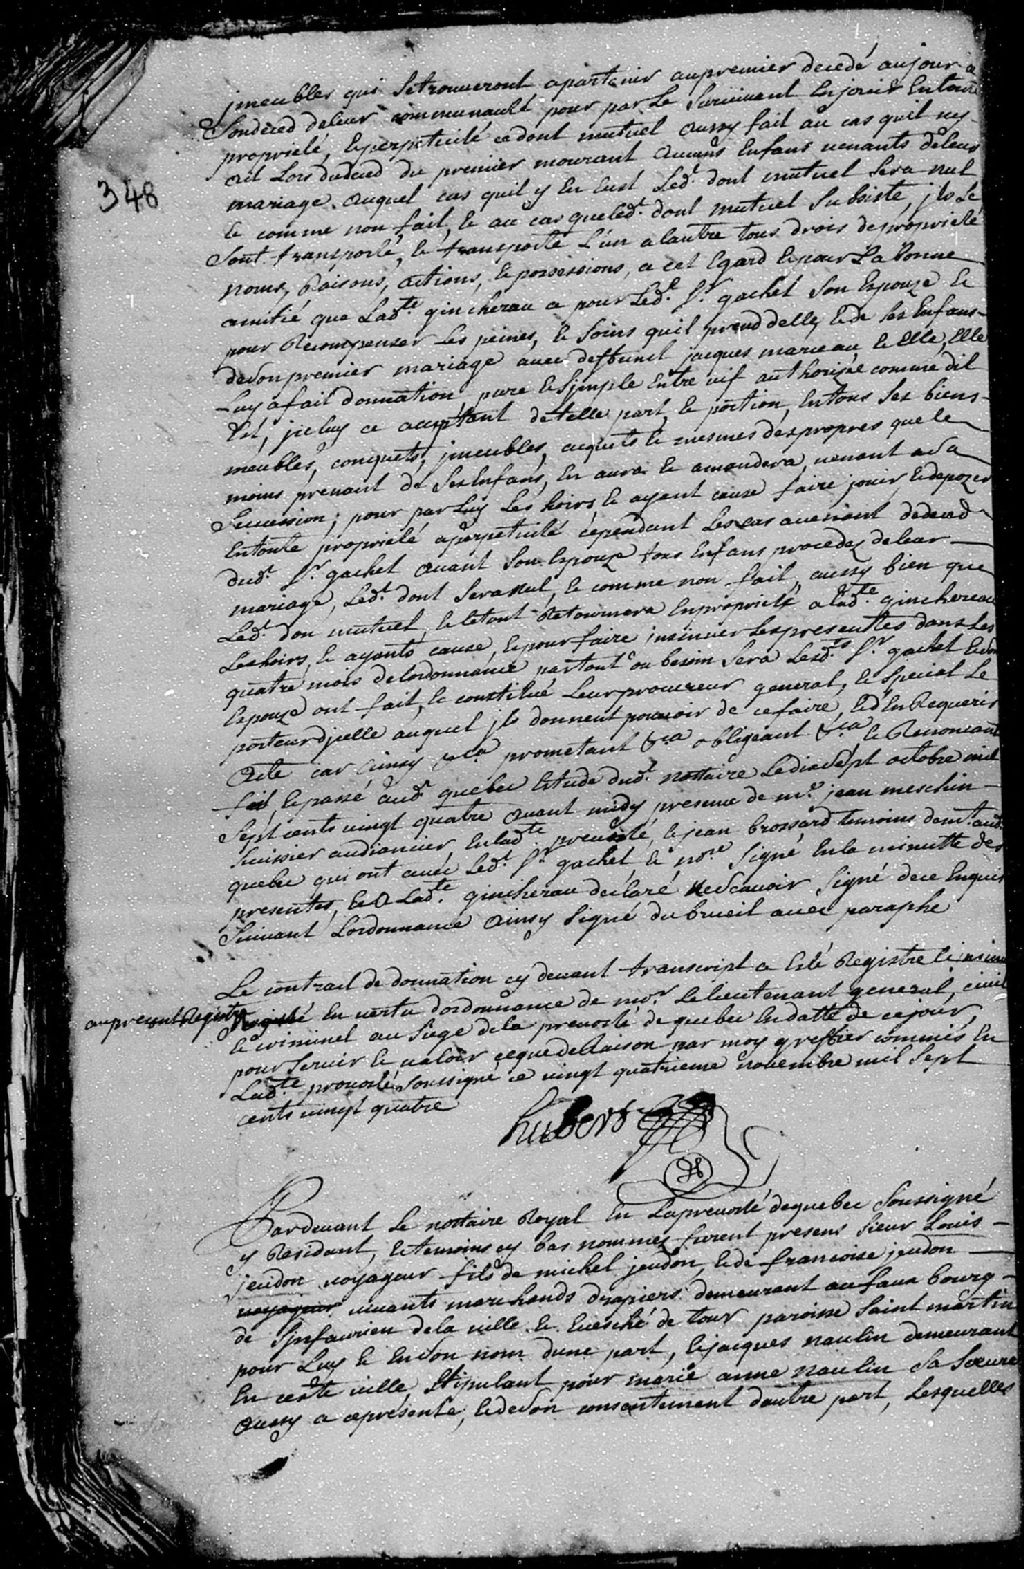 jmeubles qui setrouveront apartenir aupremier decedé aujour
deleur communauté pour par Le Survivant En jouir En toute
propriété, Et perpetuité cedont mutuel aussy fait au cas quil ny
ait Lors dudeced du premier mourant aucuns Enfans venants deleur
mariage. auquel cas quil y En Eust Ledt. dont mutuel Sera nul
Et comme non fait, Et au cas queledt. dont mutuel Subsiste jls Se
Sont transporté, Et transporte L'un alautre tous drois depropriété
noms, Raisons, actions, Et possessions, a cet Egard Et pour La bonne
amitié que Ladte. gincherau a pour Ledt. Sr. gachet Son Epouze Et
pour Recompenser Les peines, Et Soins quil prend delle, Et de Ses Enfans
deSon premier mariage avec deffunct jacques marceau Et Elle, Elle
Luy a fait donnation pure Et Simple Entre vif authorisée comme dit
Est, jceluy ce acceptant de telle part, Et portion, En tous Ses biens
meubles, conquets, jmeubles, acquets Et mesmes des propres que le
moins prenant de Ses Enfans, En aura Et amandera, venant a Sa
Succession; pour par Luy Ses hoirs Et ayant cause faire jouir Et disposer
En toute propriété aperpetuité cependant Le cas avenant deceds
dudt. Sr. gachet avant Son Epouze Sans Enfans procedez deleur
mariage, Ledt. dont Sera Nul, Et comme non fait, aussy bien que
Ledt. don mutuel, Et le tout Retournera En propriété a ladte. ginchereau
Ses hoirs, Et ayants cause, Et pour faire jnsinuer Les presentes dans Les
quatre mois delordonnance partout ou besoin Sera Lesdts. Sr. gachet Et Son
Epouze ont fait, Et constitué Leur procureur general, Et Special Le
porteur djcelle auquel jls donnent pouvoir de ce faire, Et d'En Requerir
acte car ainsy &ca. prometant &ca obligeant &ca Et Renonceant
fait Et passé audt. quebec Estude dudt. nottaire Ledixsept octobre mil
Sept cents vingt quatre avant midy presence de mr. jean meschin
huissier audiancier Enladte prevosté, Et jean brossard temoins demt. audt.
quebec qui ont avec Ledt. Sr. gachet, Et nore Signé En la minutte des
presentes, Et a Ladte. gincherau declaré ne Scavoir Signé de ce Enquis
Suivant Lordonnance ainsy Signé dubreuil avec paraphe
Le contrait de donnation cy devant transcript a Esté Registre Et jnsinué
au present Registre En vertu dordonnance de mor. Le lieutenant general, civil
Et criminel au Siege dela prevosté de quebec En datte de cejour,
pour Servir Et valoir ceque deRaison par moy greffier commis En
Ladte prevosté, Soussigné ce vingt quatrieme novembre mil Sept
cents vingt quatre
hubert
Pardevant Le nottaire Royal En Laprevosté dequebec Soussigné
y Residant, Et temoins cy bas nommés furent presens Sieur Louis
jeudon voyageur fils de michel jeudon, Et de francoise jeudon
vivants marchands drapiers demeurant au faux bourg
de dela ville Et Evesché de tour paroisse Saint martin
pour Luy Et En Son nom dune part, Et jacques naulin demeurant
En cette ville, Stipulant pour marie anne naulin Sa Soeure
aussy a cepresente, Et deSon consentement dautre part, Lesquelles
348